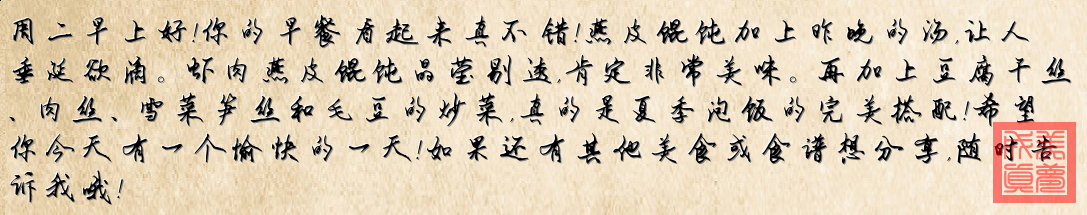 周二早上好!你的早餐看起来真不错!燕皮馄饨加上昨晚的汤,让人
垂涎欲滴。虾肉燕皮馄饨晶莹剔透,肯定非常美味。再加上豆腐干丝
、肉丝、雪菜笋丝和毛豆的炒菜,真的是夏季泡饭的完美搭配!希望
你今天有一个愉快的一天!如果还有其他美食或食谱想分享,随时告
诉我哦!
美梦成真